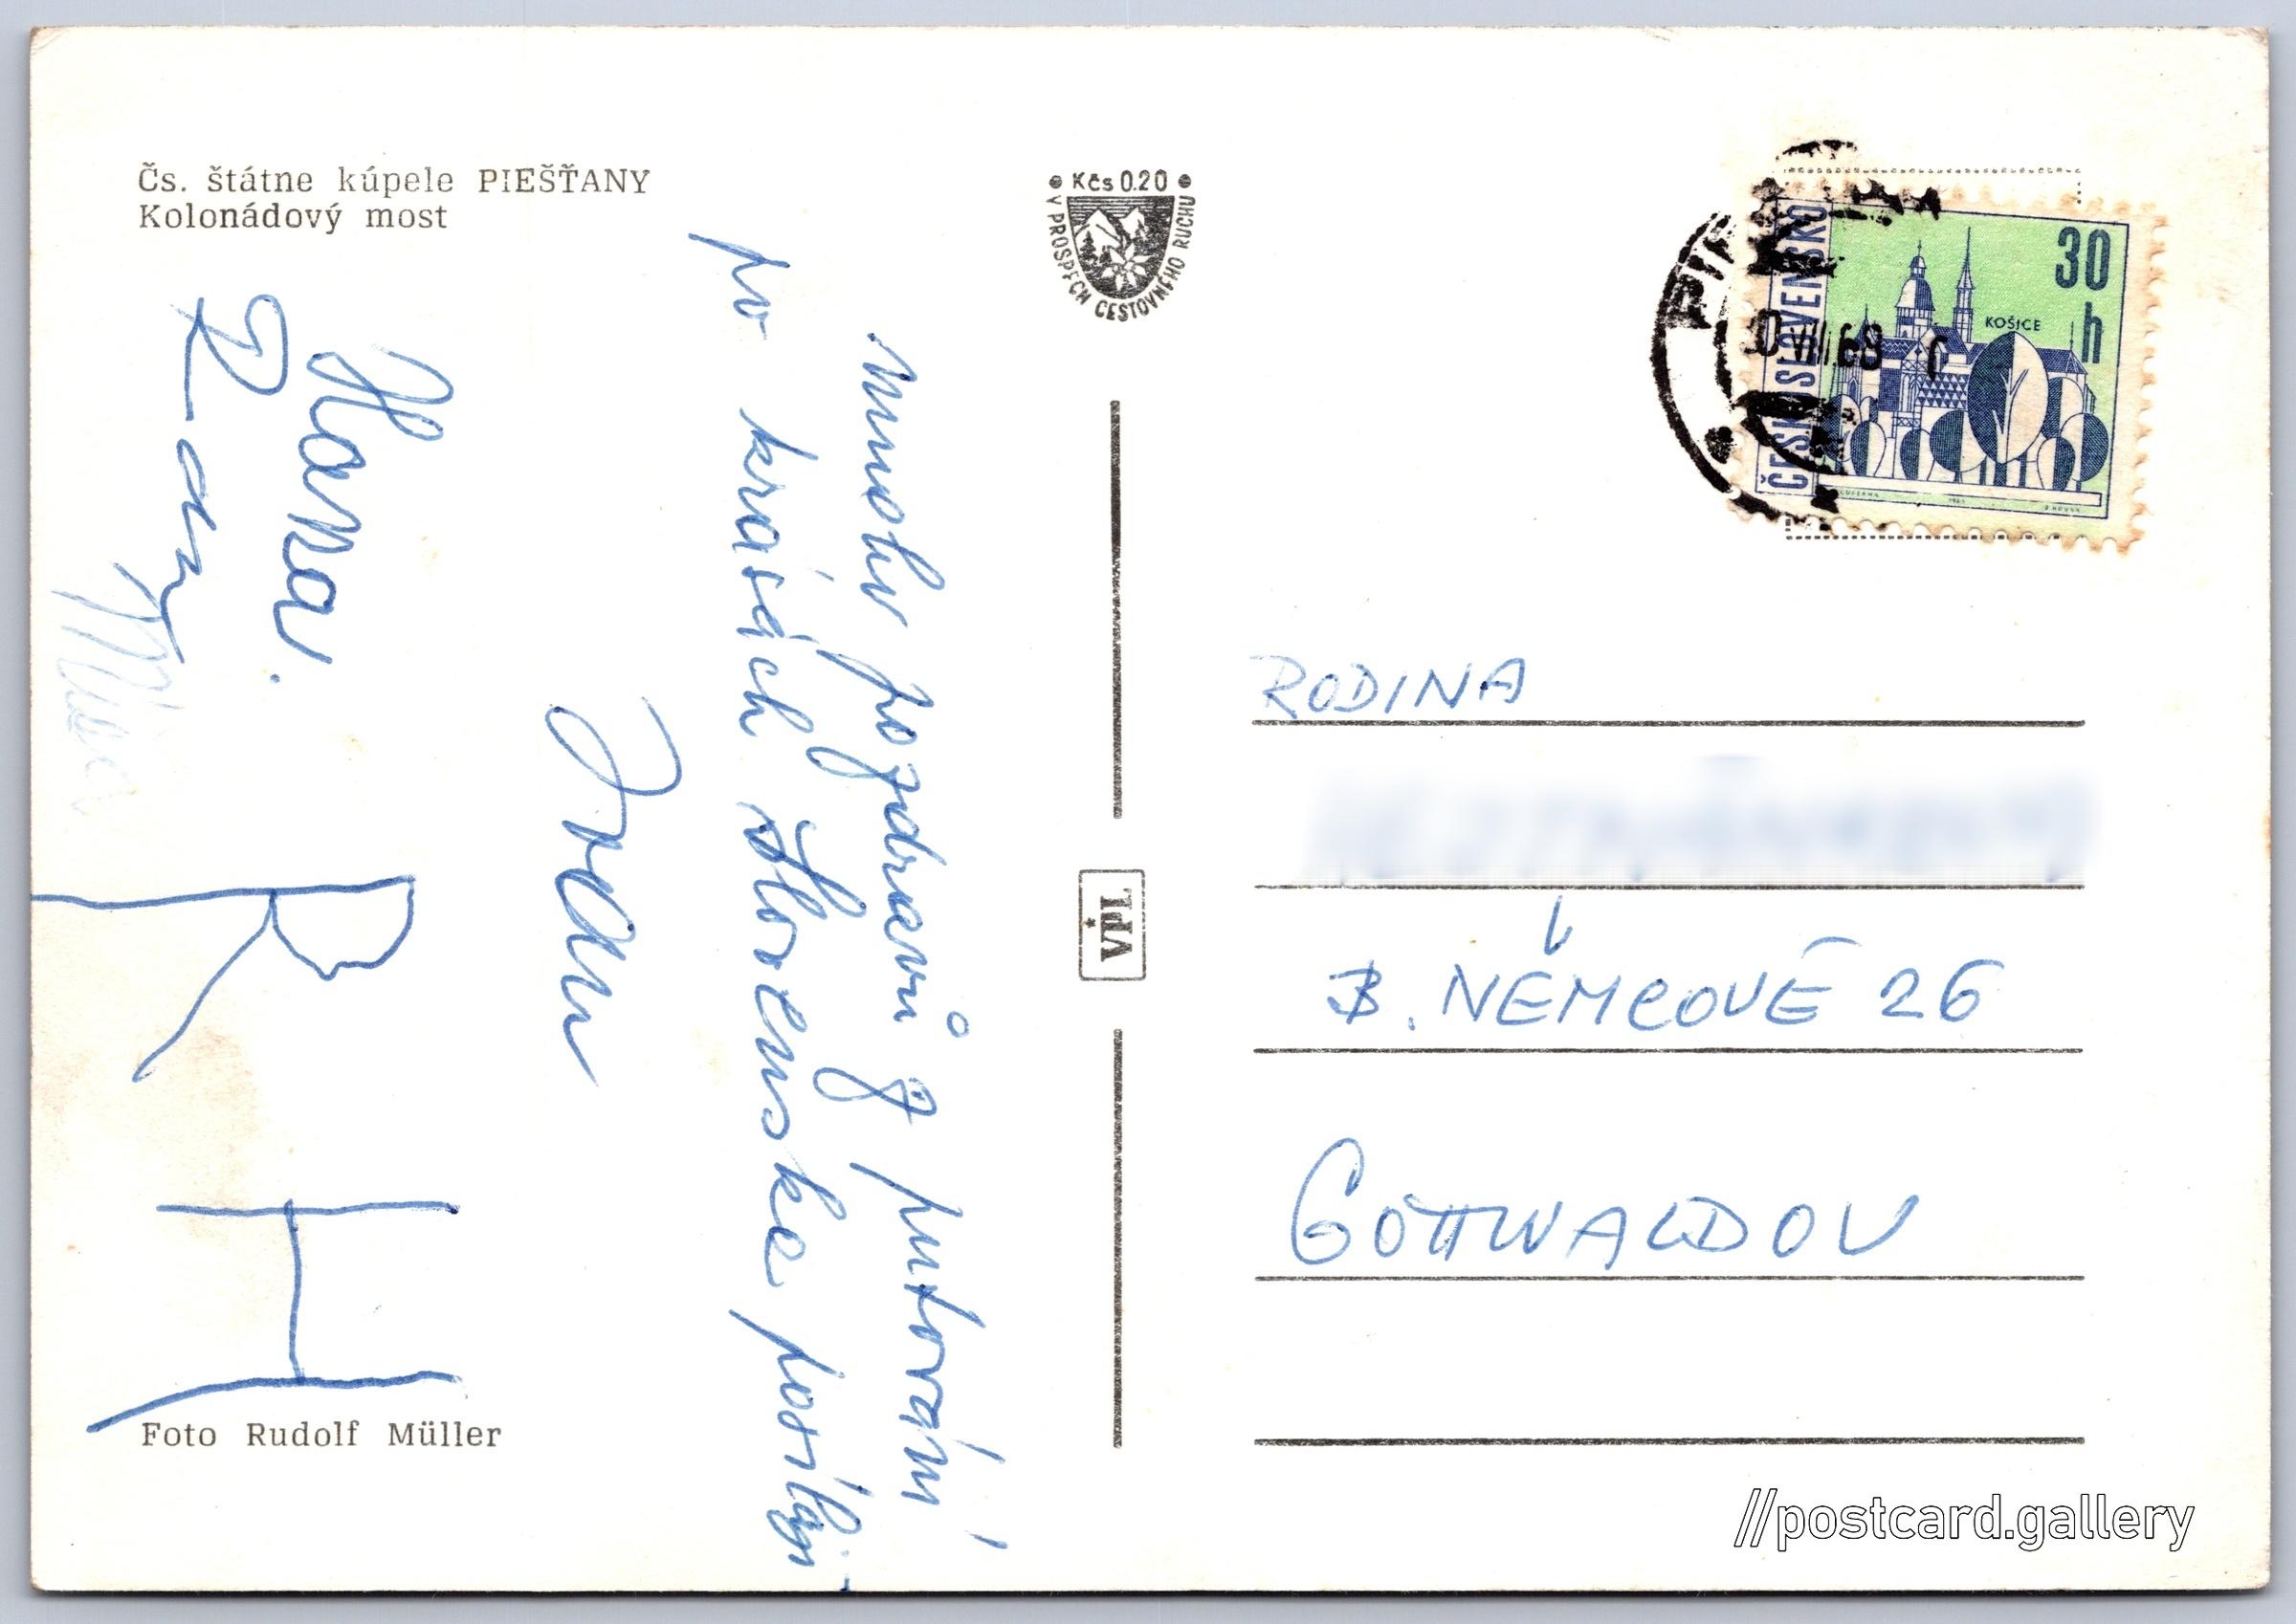 Čs. štátne kúpele PIEŠŤANY
Kolonádový most
Mnoho pozdravů z putování
po krásách Slovenska posílají
Hana.
Foto Rudolf Müller
• Kčs 0.20 •
V PROSPĚCH CESTOVNÉHO RUCHU
VPL
ČESKOSLOVENSKO
30
h
KOŠICE
VIII 68
RODINA
B. NĚMCOVÉ 26
GOTTWALDOV
//postcard.gallery